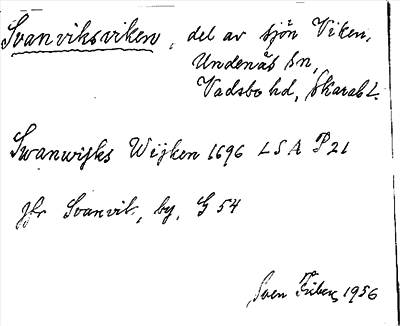 Svanviksviken, del av sjön Viken,
Undenäs sn,
Vadsbo hd, Skarab.l.
Swanwijks Wijken 1696 LSA P21
Jfr Svanvik, by, G 54
Sven 1956